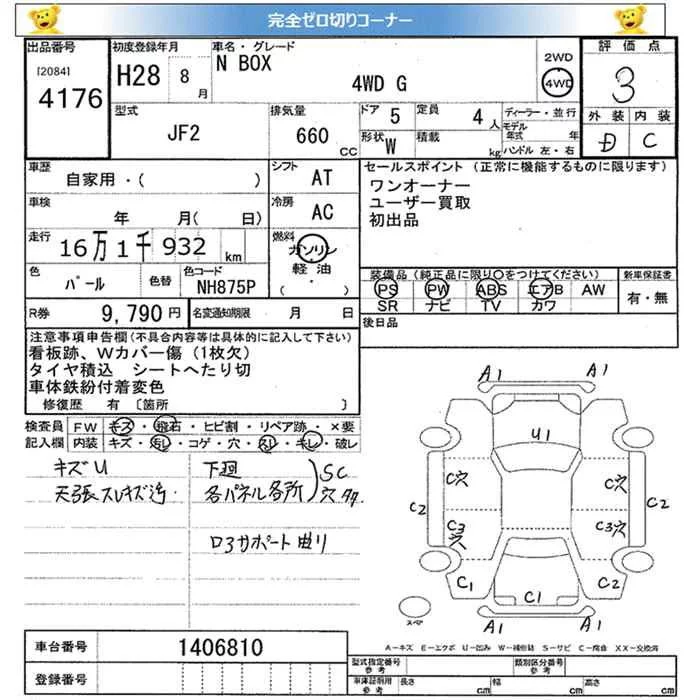 完全ゼロ切りコーナー
出品番号 初度登録年月 車名・グレード 評価点
[2084] 4176 H28 8 月 N BOX 4WD G 2WD 4WD 3
型式 JF2 排気量 660 CC ドア 5 定員 4 人 ディーラー・並行 外装 内装
形状 W 積載 kg モデル年式 年 ハンドル 左・右 D C
車歴 自家用・( ) シフト AT
セールスポイント(正常に機能するものに限ります)
ワンオーナー
ユーザー買取
初出品
車検 年 月( 日) 冷房 AC
走行 16万1千932 km 燃料 ガソリン 軽油 ( ・ )
色 パール 色替 色コード NH875P
装備品(純正品に限り○をつけてください) 新車保証書
PS PW ABS エアB AW 有・無
SR ナビ TV カワ
R券 9,790 円 名変通知期限 月 日
後日品
注意事項申告欄(不具合内容等は具体的に記入して下さい)
看板跡、Wカバー傷(1枚欠)
タイヤ積込 シートへたり切
車体鉄紛付着変色
修復歴 有 〔箇所 〕
検査員 FW キズ・飛石・ヒビ割・リペア跡・×要
記入欄 内装 キズ・汚レ・コゲ・穴・スレ・キレ・破レ
キズU 下廻 SC
天張スレキズ汚 各パネル各所 穴タタ
ロ3サポート曲り
A1 A1
U1
C穴 C穴
C2 C2
C3穴 C3穴
C1 C1 C2
A1 A1
スペア
A−キズ E−エクボ U−凹み W−補修跡 S−サビ C−腐食 XX−交換済
車台番号 1406810
登録番号
型式指定番号 参考 類別区分番号 参考
車庫証明用 参考 長さ cm 幅 cm 高さ cm